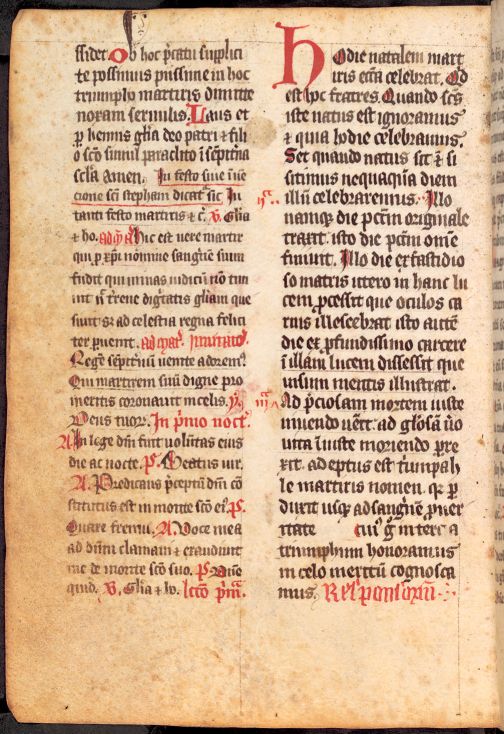 ssidet. Ob hoc p̄catu supplici
te possimus piissime in hoc
triumpho martiris dimitte
noxam seruulis. Laus et
ꝑ hennis gl̄ia deo patri ⁊ fili
o sc̄o simul paraclito ī sēpit̄na
sc̄la Amen. In festo siue īuē
cione sc̄i stephani dicat͛ sic In
tanti festo martiris ⁊ c̄. V. Gl̄ia
⁊ ho. Ad Hic est uere martir
qui ꝓ xp̄i nomine sanguinē suum
fudit qui minas iudicū nō tim
uit n̄ t̄rene dignitatis gl̄iam que
siuit s; ad celestia regna felici
ter ꝑuenit. Ad mat͛. Inuitato͛
Regē sēpit̄nū uenite adorem͛
Qui martirem suū digne pro
meritis coronauit in celis. yp̄.
Deus tuor͛. In p̄mo noct͛.
A. In lege dn̄i fuit uolūtas eius
die ac nocte. P̄. Beatus uir.
A. Predicans p̄ceptū dn̄i cō
stitutus est in monte sc̄o ei͛. P̄.
Quare fremu. A. Voce mea
ad dn̄m clamaui ⁊ exaudiuit
me de monte sc̄o suo. P̄. Dn̄e
quid. V. Gl̄ia ⁊ ho. lc̄co p̄ma.
Hodie natalem mart
iris ecc̄a celebrat. Qd
est hoc fratres. Quando sc̄s
iste natus est ignoramus
⁊ quia hodie celebramus.
Set quando natus sit ⁊ si
sitimus nequaquā diem
illū celebraremus. Illo
namq; die pctm̄ originale
traxit. isto die pctm̄ om̄e
finiuit. Illo die ex fastidio
so matris utero in hanc lu
cem ꝓcessit que oculos ca
rnis illecebrat isto autē
die ex ꝓfundissimo carcere
ī illam lucem discessit que
uisum mentis illustrat.
Ad p̄ciosam mortem iuste
uiuendo uēit. ad gl̄osā ū̄o
uita īiuste moriendo ꝑre
xit. adeptus est triumpah
le martiris nomen. qr̄ ꝑ
durit usq; ad sanguinē ꝓ uer
itate cui͛ g̊ in terra
triumphum honoramus
in celo meritū cognosca
mus. Responsoriū